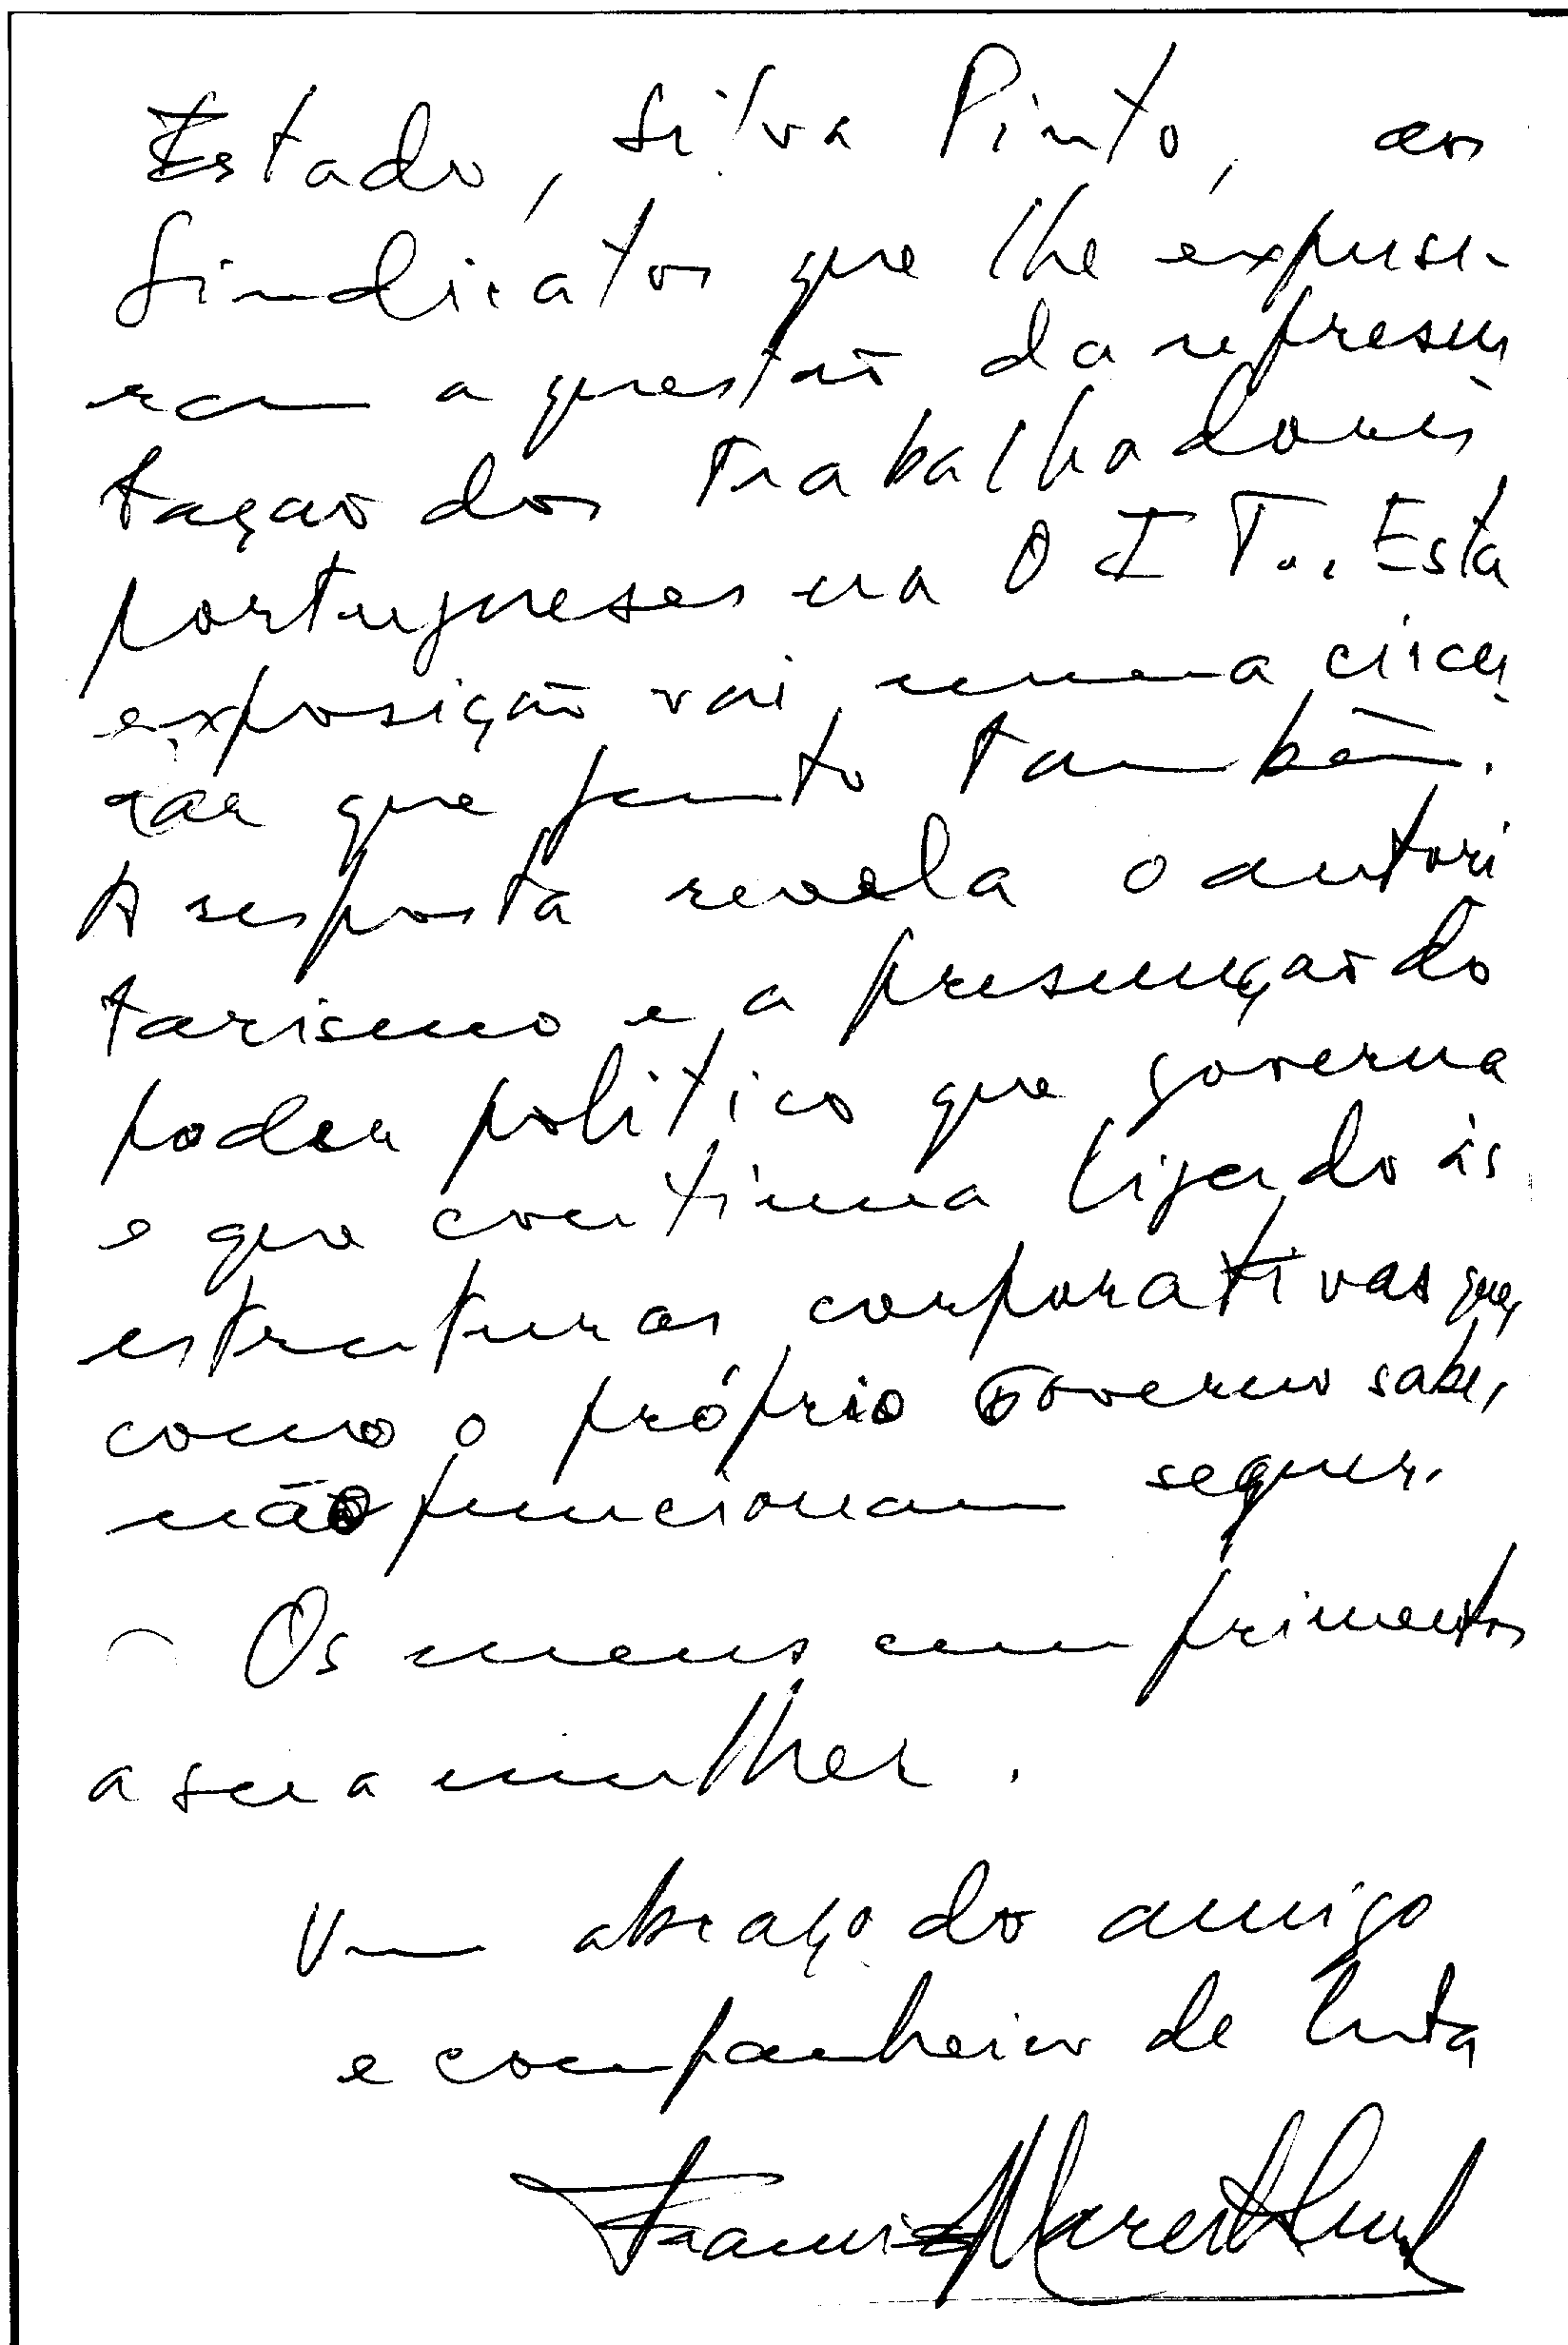 Estado, Silva Pinto, aos
Sindicatos que lhe expuse-
ram a questão da represen
tação dos Trabalhadores
portugueses na O I T.. Esta
exposição vai numa circu
lar que junto também.
A resposta revela o autori
tarismo e a presunção do
poder político que governa
e que continua ligado às
estruturas corporativas que,
como o próprio Governo sabe,
não funcionam sequer.
Os meus cumprimentos
a sua mulher.
Um abraço do amigo
e companheiro de luta
Francisco